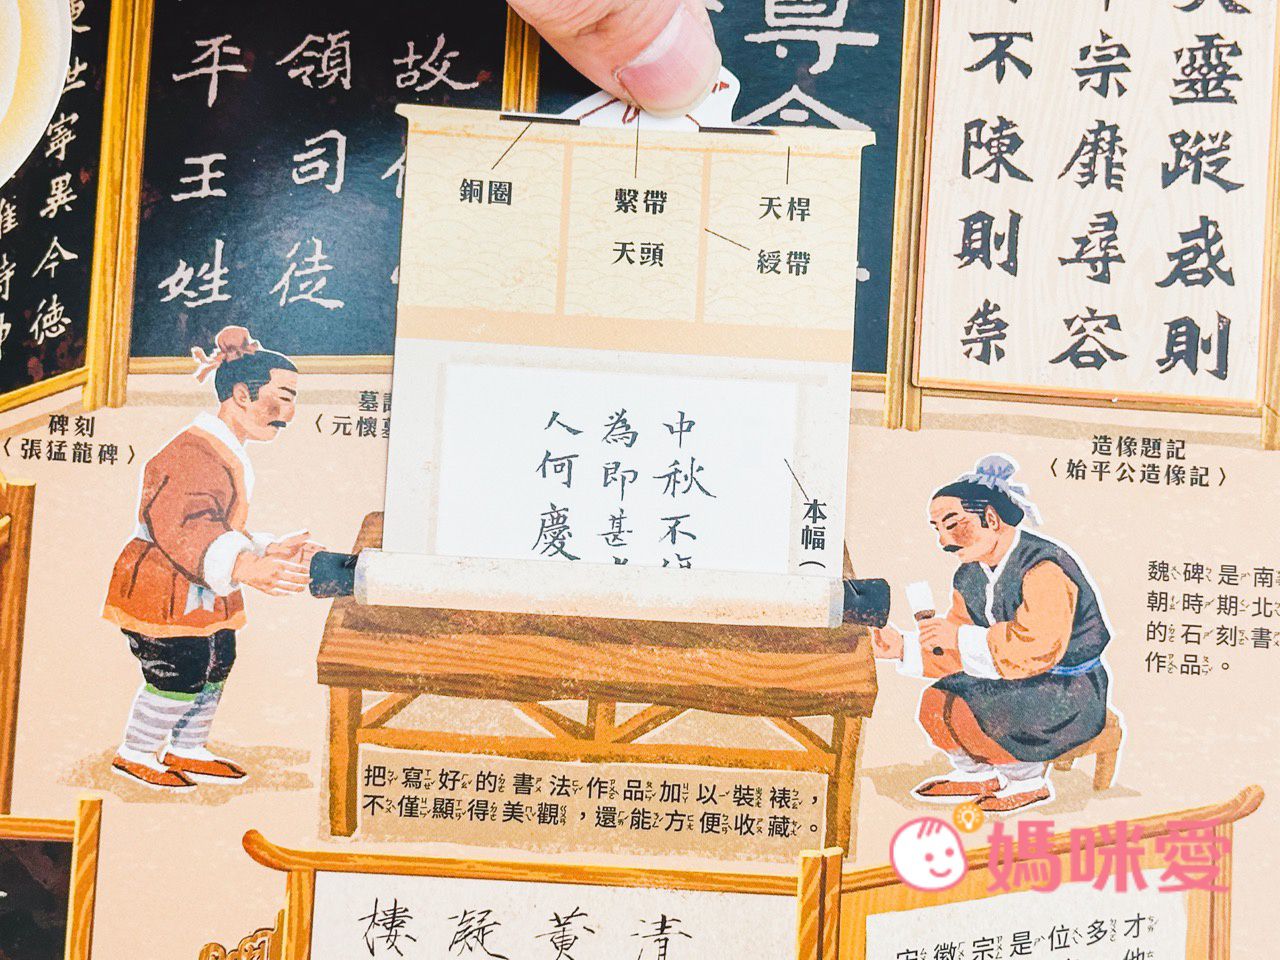 平王姓
領司徒
故
世寧異今德
尊
不陳則崇
宗靡尋容
靈蹤啟則
銅圈
繫帶
天頭
天桿
綬帶
中秋不
為即甚
人何慶
本幅
碑刻
〈張猛龍碑〉
造像題記
〈始平公造像記〉
魏碑是南
朝時期北
的石刻書
作品。
把寫好的書法作品加以裝裱，
不僅顯得美觀，還能方便收藏。
媽咪愛
清
黃
凝
樓
徽宗是位多才